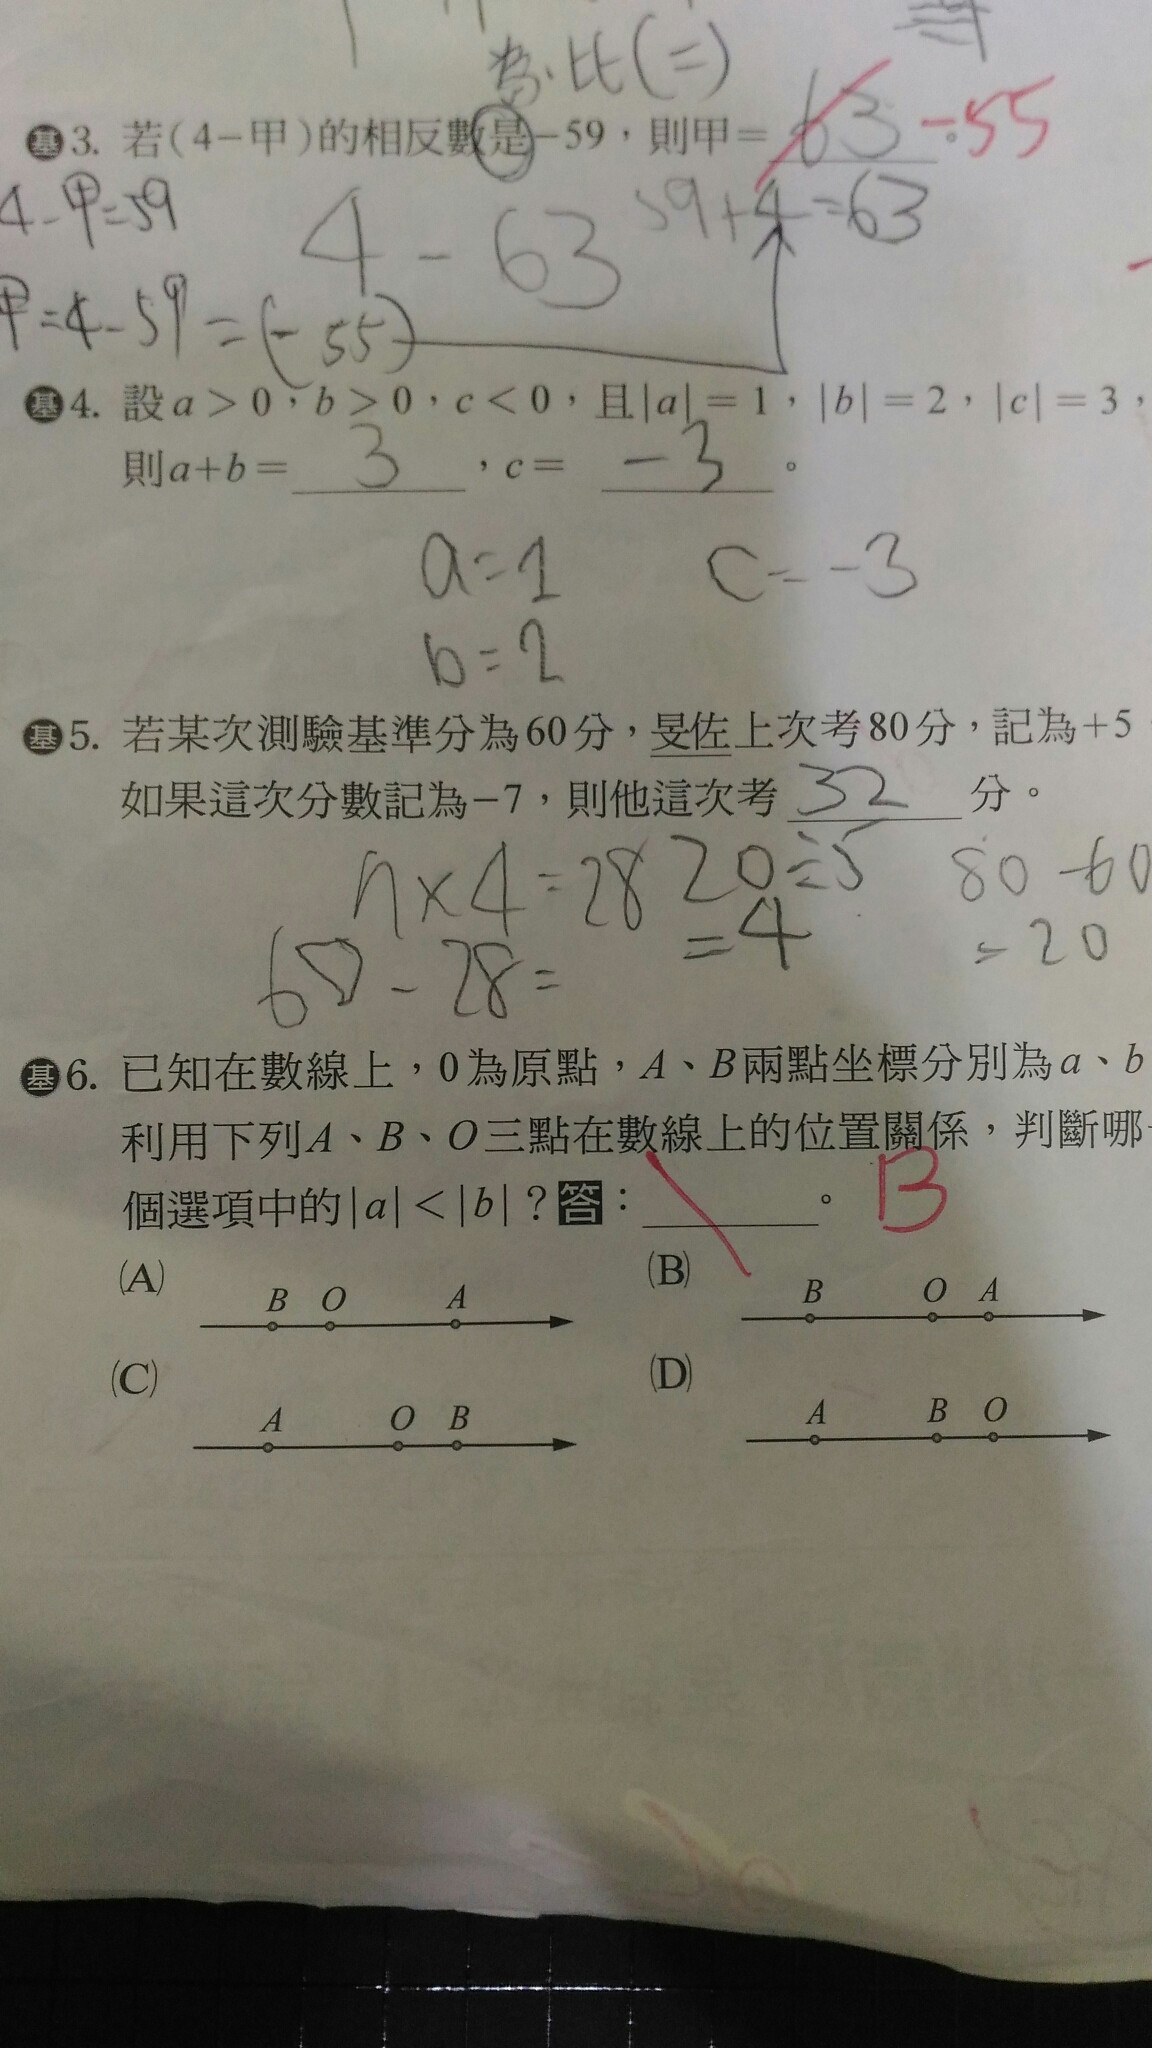 為.比(=)
基3. 若(4-甲)的相反數是-59，則甲= 63 。-55
4-甲=59
4-63
59+4=63
甲=4-59=(-55)
基4. 設a>0，b>0，c<0，且|a|=1，|b|=2，|c|=3，
則a+b= 3 ，c= -3 。
a=1 c=-3
b=2
基5. 若某次測驗基準分為60分，旻佐上次考80分，記為+5，
如果這次分數記為-7，則他這次考 32 分。
×4=28 20÷5 80-60
60-28= =4 =20
基6. 已知在數線上，0為原點，A、B兩點坐標分別為a、b
利用下列A、B、O三點在數線上的位置關係，判斷哪一
個選項中的|a|<|b|？答： 。 B
(A) B O A
(B) B O A
(C) A O B
(D) A B O